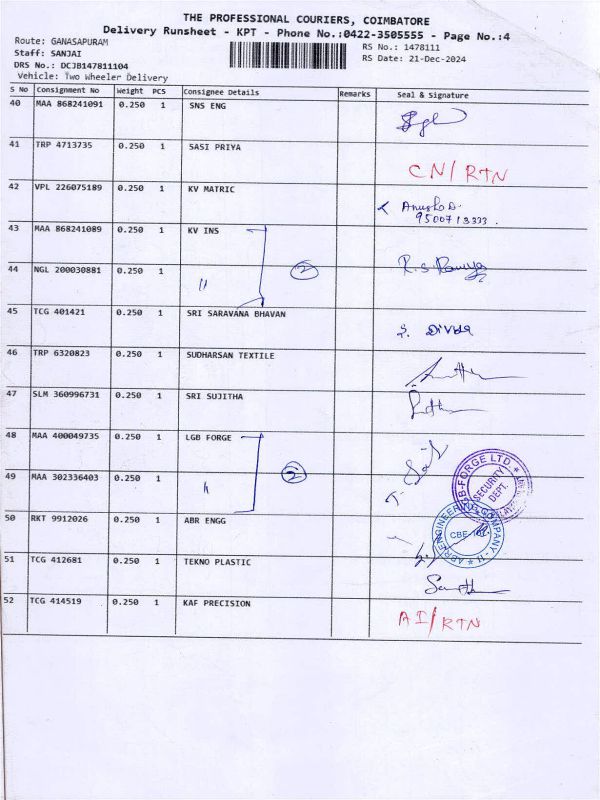 THE PROFESSIONAL COURIERS, COIMBATORE
Delivery Runsheet - KPT - Phone No.:0422-3505555 - Page No.:4
Route: GANASAPURAM
RS No.: 1478111
Staff: SANJAI
RS Date: 21-Dec-2024
DRS No.: DCJB147811104
Vehicle: Two Wheeler Delivery
S No Consignment No Weight PCS Consignee Details Remarks Seal & Signature
40 MAA 868241091 0.250 1 SNS ENG
41 TRP 4713735 0.250 1 SASI PRIYA CN/RTN
42 VPL 226075189 0.250 1 KV MATRIC
9500713333.
43 MAA 868241089 0.250 1 KV INS
2
44 NGL 200030881 0.250 1 "
45 TCG 401421 0.250 1 SRI SARAVANA BHAVAN
S. Divya
46 TRP 6320823 0.250 1 SUDHARSAN TEXTILE
47 SLM 360996731 0.250 1 SRI SUJITHA
48 MAA 400049735 0.250 1 LGB FORGE
2
49 MAA 302336403 0.250 1 "
SECURITY
DEPT.
50 RKT 9912026 0.250 1 ABR ENGG
51 TCG 412681 0.250 1 TEKNO PLASTIC
52 TCG 414519 0.250 1 KAF PRECISION AI/RTN